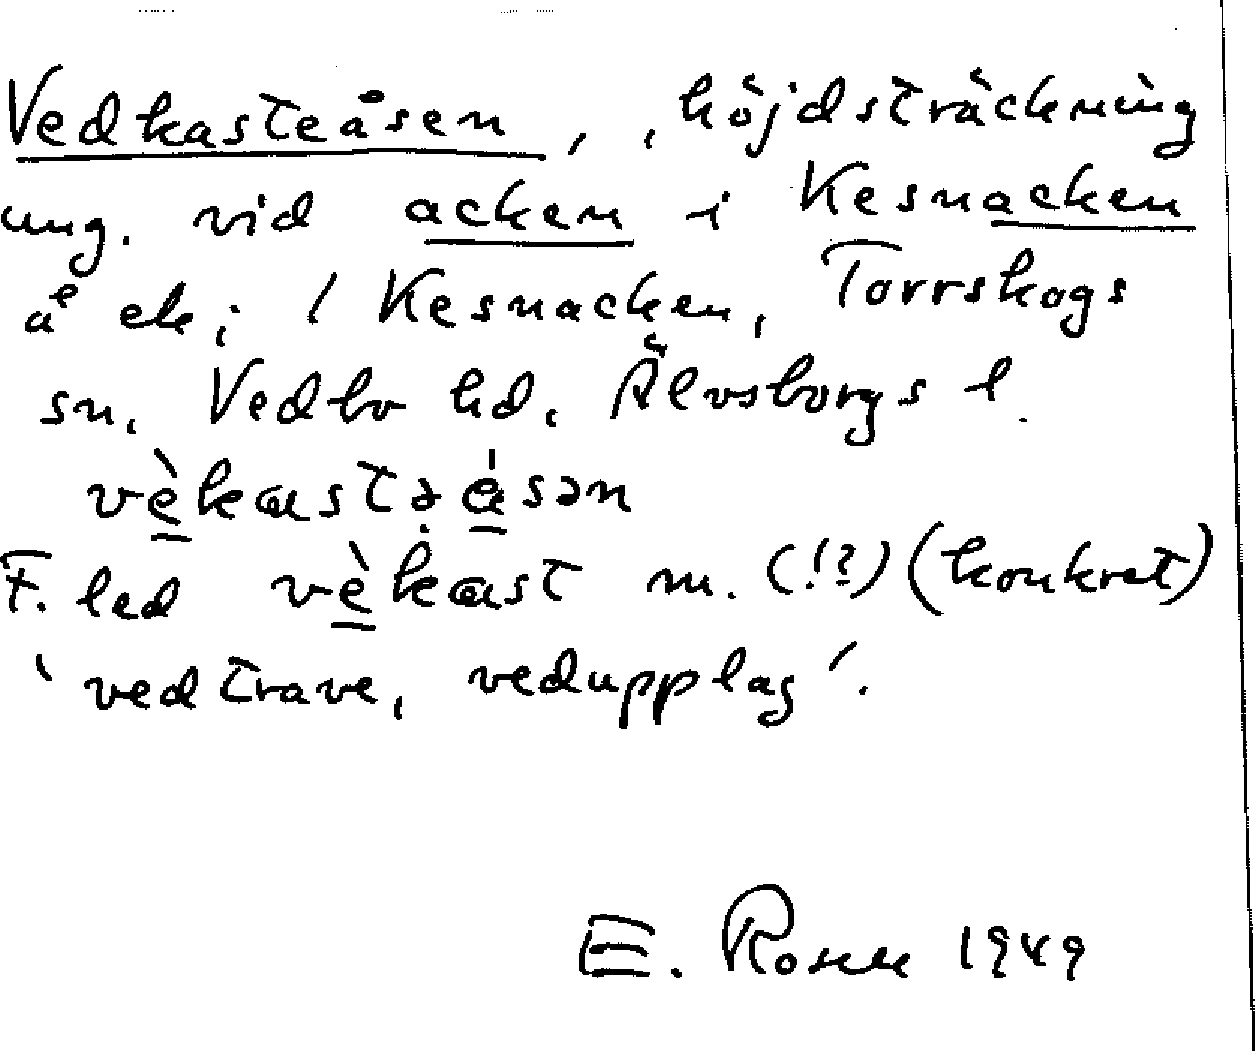 Vedkasteåsen, , höjdsträckning
ung. vid acken i Kesnacken
å ek; i Kesnacken, Torrskogs
sn. Vedbo hd. Älvsborgs l.
vèkastə åsən
F. led vèkast m. (!?) (konkret)
'vedtrave, vedupplag'.
E. Rosell 1949